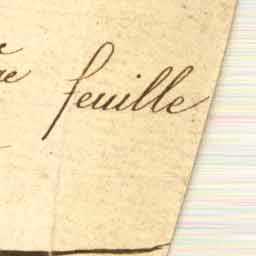 re feuille